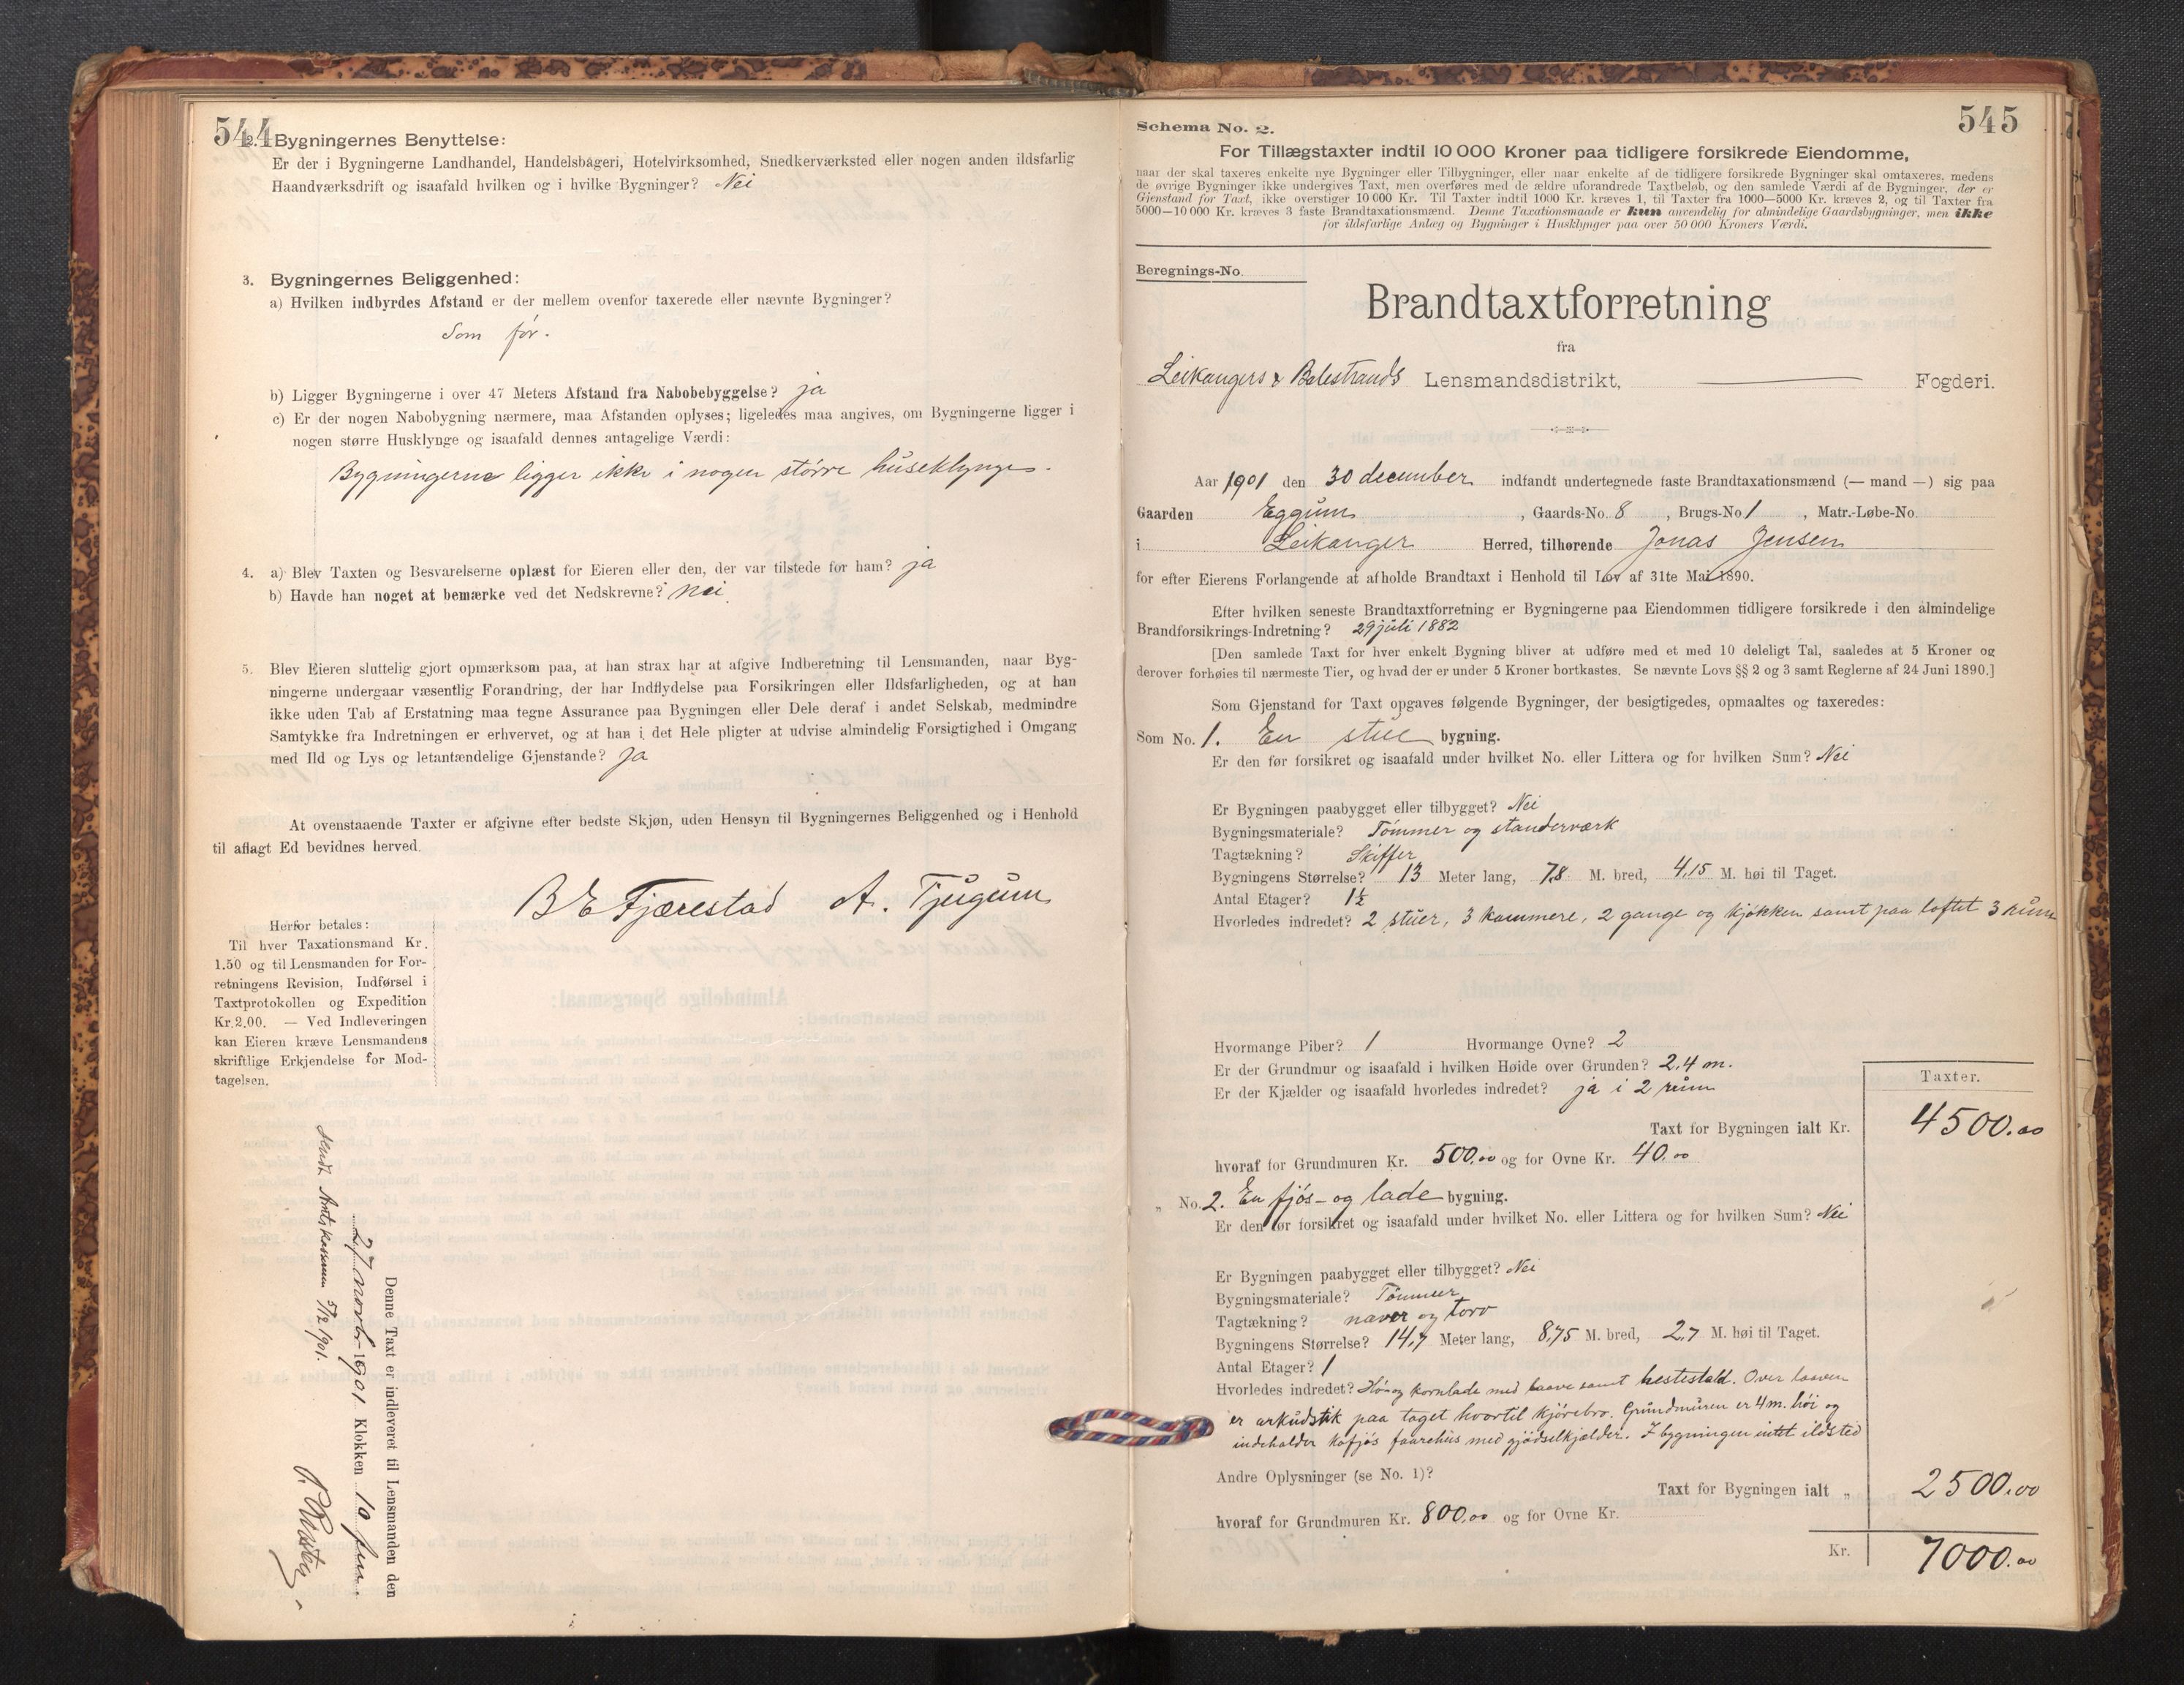 544
2. Bygningernes Benyttelse:
Er der i Bygningerne Landhandel, Handelsbageri, Hotelvirksomhed, Snedkerværksted eller nogen anden ildsfarlig
Haandværksdrift og isaafald hvilken og i hvilke Bygninger? Nei
3. Bygningernes Beliggenhed:
a) Hvilken indbyrdes Afstand er der mellem ovenfor taxerede eller nævnte Bygninger?
Som før.
b) Ligger Bygningerne i over 47 Meters Afstand fra Nabobebyggelse? ja
c) Er der nogen Nabobygning nærmere, maa Afstanden oplyses; ligeledes maa angives, om Bygningerne ligger i
nogen større Husklynge og isaafald dennes antagelige Værdi:
Bygningerne ligger ikke i nogen större huseklynge.
4. a) Blev Taxten og Besvarelserne oplæst for Eieren eller den, der var tilstede for ham? ja
b) Havde han noget at bemærke ved det Nedskrevne? Nei.
5. Blev Eieren sluttelig gjort opmærksom paa, at han strax har at afgive Indberetning til Lensmanden, naar Byg-
ningerne undergaar væsentlig Forandring, der har Indflydelse paa Forsikringen eller Ildsfarligheden, og at han
ikke uden Tab af Erstatning maa tegne Assurance paa Bygningen eller Dele deraf i andet Selskab, medmindre
Samtykke fra Indretningen er erhvervet, og at han i det Hele pligter at udvise almindelig Forsigtighed i Omgang
med Ild og Lys og letantændelige Gjenstande? Ja
At ovenstaaende Taxter er afgivne efter bedste Skjøn, uden Hensyn til Bygningernes Beliggenhed og i Henhold
til aflagt Ed bevidnes herved.
B E Fjærestad A. Tjugum
Herfor betales:
Til hver Taxationsmand Kr.
1.50 og til Lensmanden for For-
retningens Revision, Indførsel i
Taxtprotokollen og Expedition
Kr. 2.00. — Ved Indleveringen
kan Eieren kræve Lensmandens
skriftlige Erkjendelse for Mod-
tagelsen.
Denne Taxt er indleveret til Lensmanden den
27 novbr 1901 Klokken 10 fm.
Sendt Amtskassereren 5/12 1901.
545
Schema No. 2.
For Tillægstaxter indtil 10 000 Kroner paa tidligere forsikrede Eiendomme,
naar der skal taxeres enkelte nye Bygninger eller Tilbygninger, eller naar enkelte af de tidligere forsikrede Bygninger skal omtaxeres, medens
de øvrige Bygninger ikke undergives Taxt, men overføres med de ældre uforandrede Taxtbeløb, og den samlede Værdi af de Bygninger, der er
Gjenstand for Taxt, ikke overstiger 10 000 Kr. Til Taxter indtil 1000 Kr. kræves 1, til Taxter fra 1000—5000 Kr. kræves 2, og til Taxter fra
5000—10 000 Kr. kræves 3 faste Brandtaxationsmænd. Denne Taxationsmaade er kun anvendelig for almindelige Gaardsbygninger, men ikke
for ildsfarlige Anlæg og Bygninger i Husklynger paa over 50 000 Kroners Værdi.
Beregnings-No.
Brandtaxtforretning
fra
Leikangers & Balestrands Lensmandsdistrikt, Fogderi.
Aar 1901 den 30 december indfandt undertegnede faste Brandtaxationsmænd (— mand —) sig paa
Gaarden Eggum, Gaards-No. 8, Brugs-No 1, Matr.-Løbe-No.
i Leikanger Herred, tilhørende Jonas Jensen
for efter Eierens Forlangende at afholde Brandtaxt i Henhold til Lov af 31te Mai 1890.
Efter hvilken seneste Brandtaxtforretning er Bygningerne paa Eiendommen tidligere forsikrede i den almindelige
Brandforsikrings-Indretning? 29 juli 1882
[Den samlede Taxt for hver enkelt Bygning bliver at udføre med et med 10 deleligt Tal, saaledes at 5 Kroner og
derover forhøies til nærmeste Tier, og hvad der er under 5 Kroner bortkastes. Se nævnte Lovs §§ 2 og 3 samt Reglerne af 24 Juni 1890.]
Som Gjenstand for Taxt opgaves følgende Bygninger, der besigtigedes, opmaaltes og taxeredes:
Som No. 1. En stue bygning.
Er den før forsikret og isaafald under hvilket No. eller Littera og for hvilken Sum? Nei
Er Bygningen paabygget eller tilbygget? Nei
Bygningsmateriale? Tömmer og standerværk
Tagtækning? Skiffer
Bygningens Størrelse? 13 Meter lang, 7,8 M. bred, 4,15 M. høi til Taget.
Antal Etager? 1½
Hvorledes indredet? 2 stuer, 3 kammere, 2 gange og kjøkken samt paa loftet 3 rum
Hvormange Piber? 1 Hvormange Ovne? 2
Er der Grundmur og isaafald i hvilken Høide over Grunden? 2,4 m.
Er der Kjælder og isaafald hvorledes indredet? ja i 2 rum
Taxter.
Taxt for Bygningen ialt Kr. 4500.00
hvoraf for Grundmuren Kr. 500,00 og for Ovne Kr. 40.00
„ No. 2. En fjøs- og lade bygning.
Er den før forsikret og isaafald under hvilket No. eller Littera og for hvilken Sum? Nei
Er Bygningen paabygget eller tilbygget? Nei
Bygningsmateriale? Tömmer
Tagtækning? næver og torv
Bygningens Størrelse? 14,7 Meter lang, 8,75 M. bred, 2,7 M. høi til Taget.
Antal Etager? 1
Hvorledes indredet? Hø- og kornlade med laave samt hestestald. Over laaven
er arkudstik paa taget hvortil kjörebro. Grundmuren er 4 m. höi og
indeholder kofjös faarehus med gjödselkjælder. I bygningen intet ildsted
Andre Oplysninger (se No. 1)?
Taxt for Bygningen ialt „ 2500.00
hvoraf for Grundmuren Kr. 800,00 og for Ovne Kr.
Kr. 7000.00